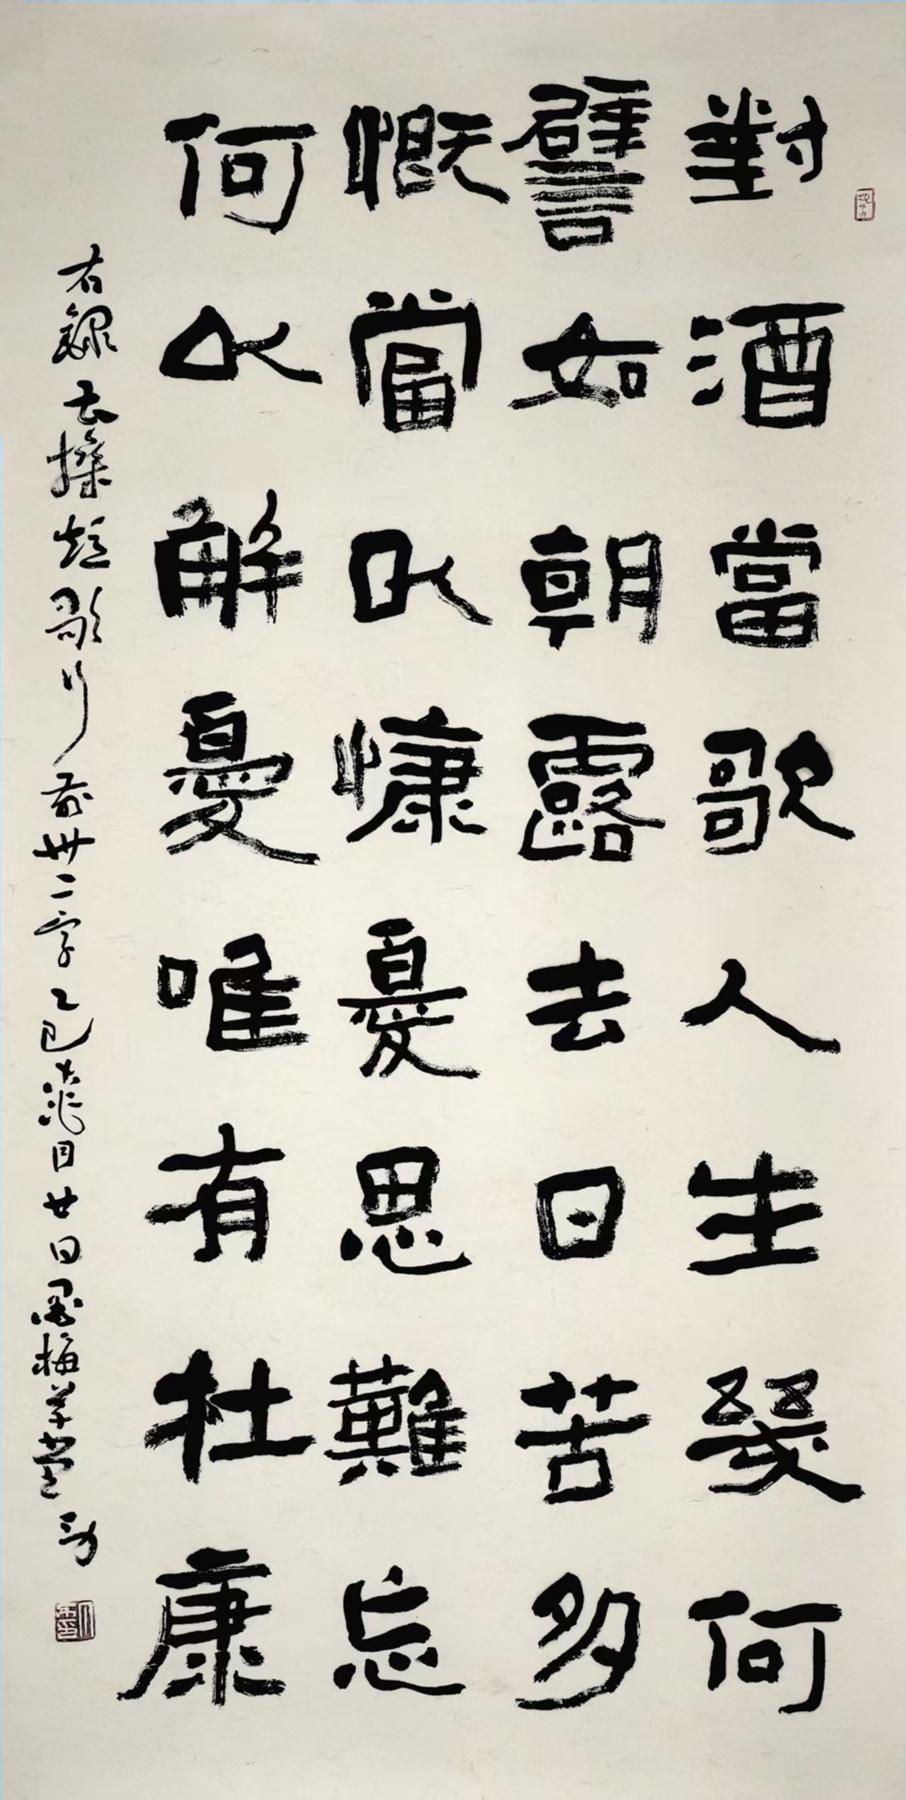 對酒當歌人生幾何
譬如朝露去日苦多
慨當以慷憂思難忘
何以解憂唯有杜康
右錄曹操短歌行前卅二字乙巳荷月廿日墨梅草堂